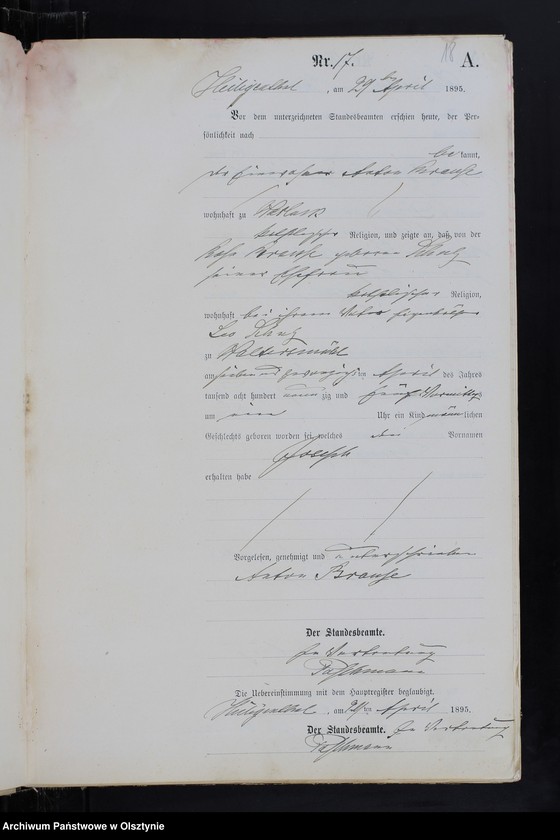 18
Nr. 17. A.
Heiligenthal, am 29ten April 1895.
Vor dem unterzeichneten Standesbeamten erschien heute, der Per-
sönlichkeit nach
bekannt,
der Einwohner Anton Krause
wohnhaft zu
katholischer Religion, und zeigte an, daß von der
Rosa Krause geborene
seiner Ehefrau
katholischer Religion,
wohnhaft bei ihrem Vater
Leo
zu Waltersmühl
am sieben und zwanzigsten April des Jahres
tausend acht hundert neunzig und fünf Vormittags
um ein Uhr ein Kind männlichen
Geschlechts geboren worden sei, welches den Vornamen
Joseph
erhalten habe
Vorgelesen, genehmigt und unterschrieben
Anton Krause
Der Standesbeamte.
In Vertretung
Die Uebereinstimmung mit dem Hauptregister beglaubigt.
Heiligenthal, am 29ten April 1895.
Der Standesbeamte. In Vertretung
Archiwum Państwowe w Olsztynie